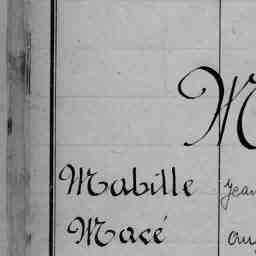 M
Mabille Jean
Macé